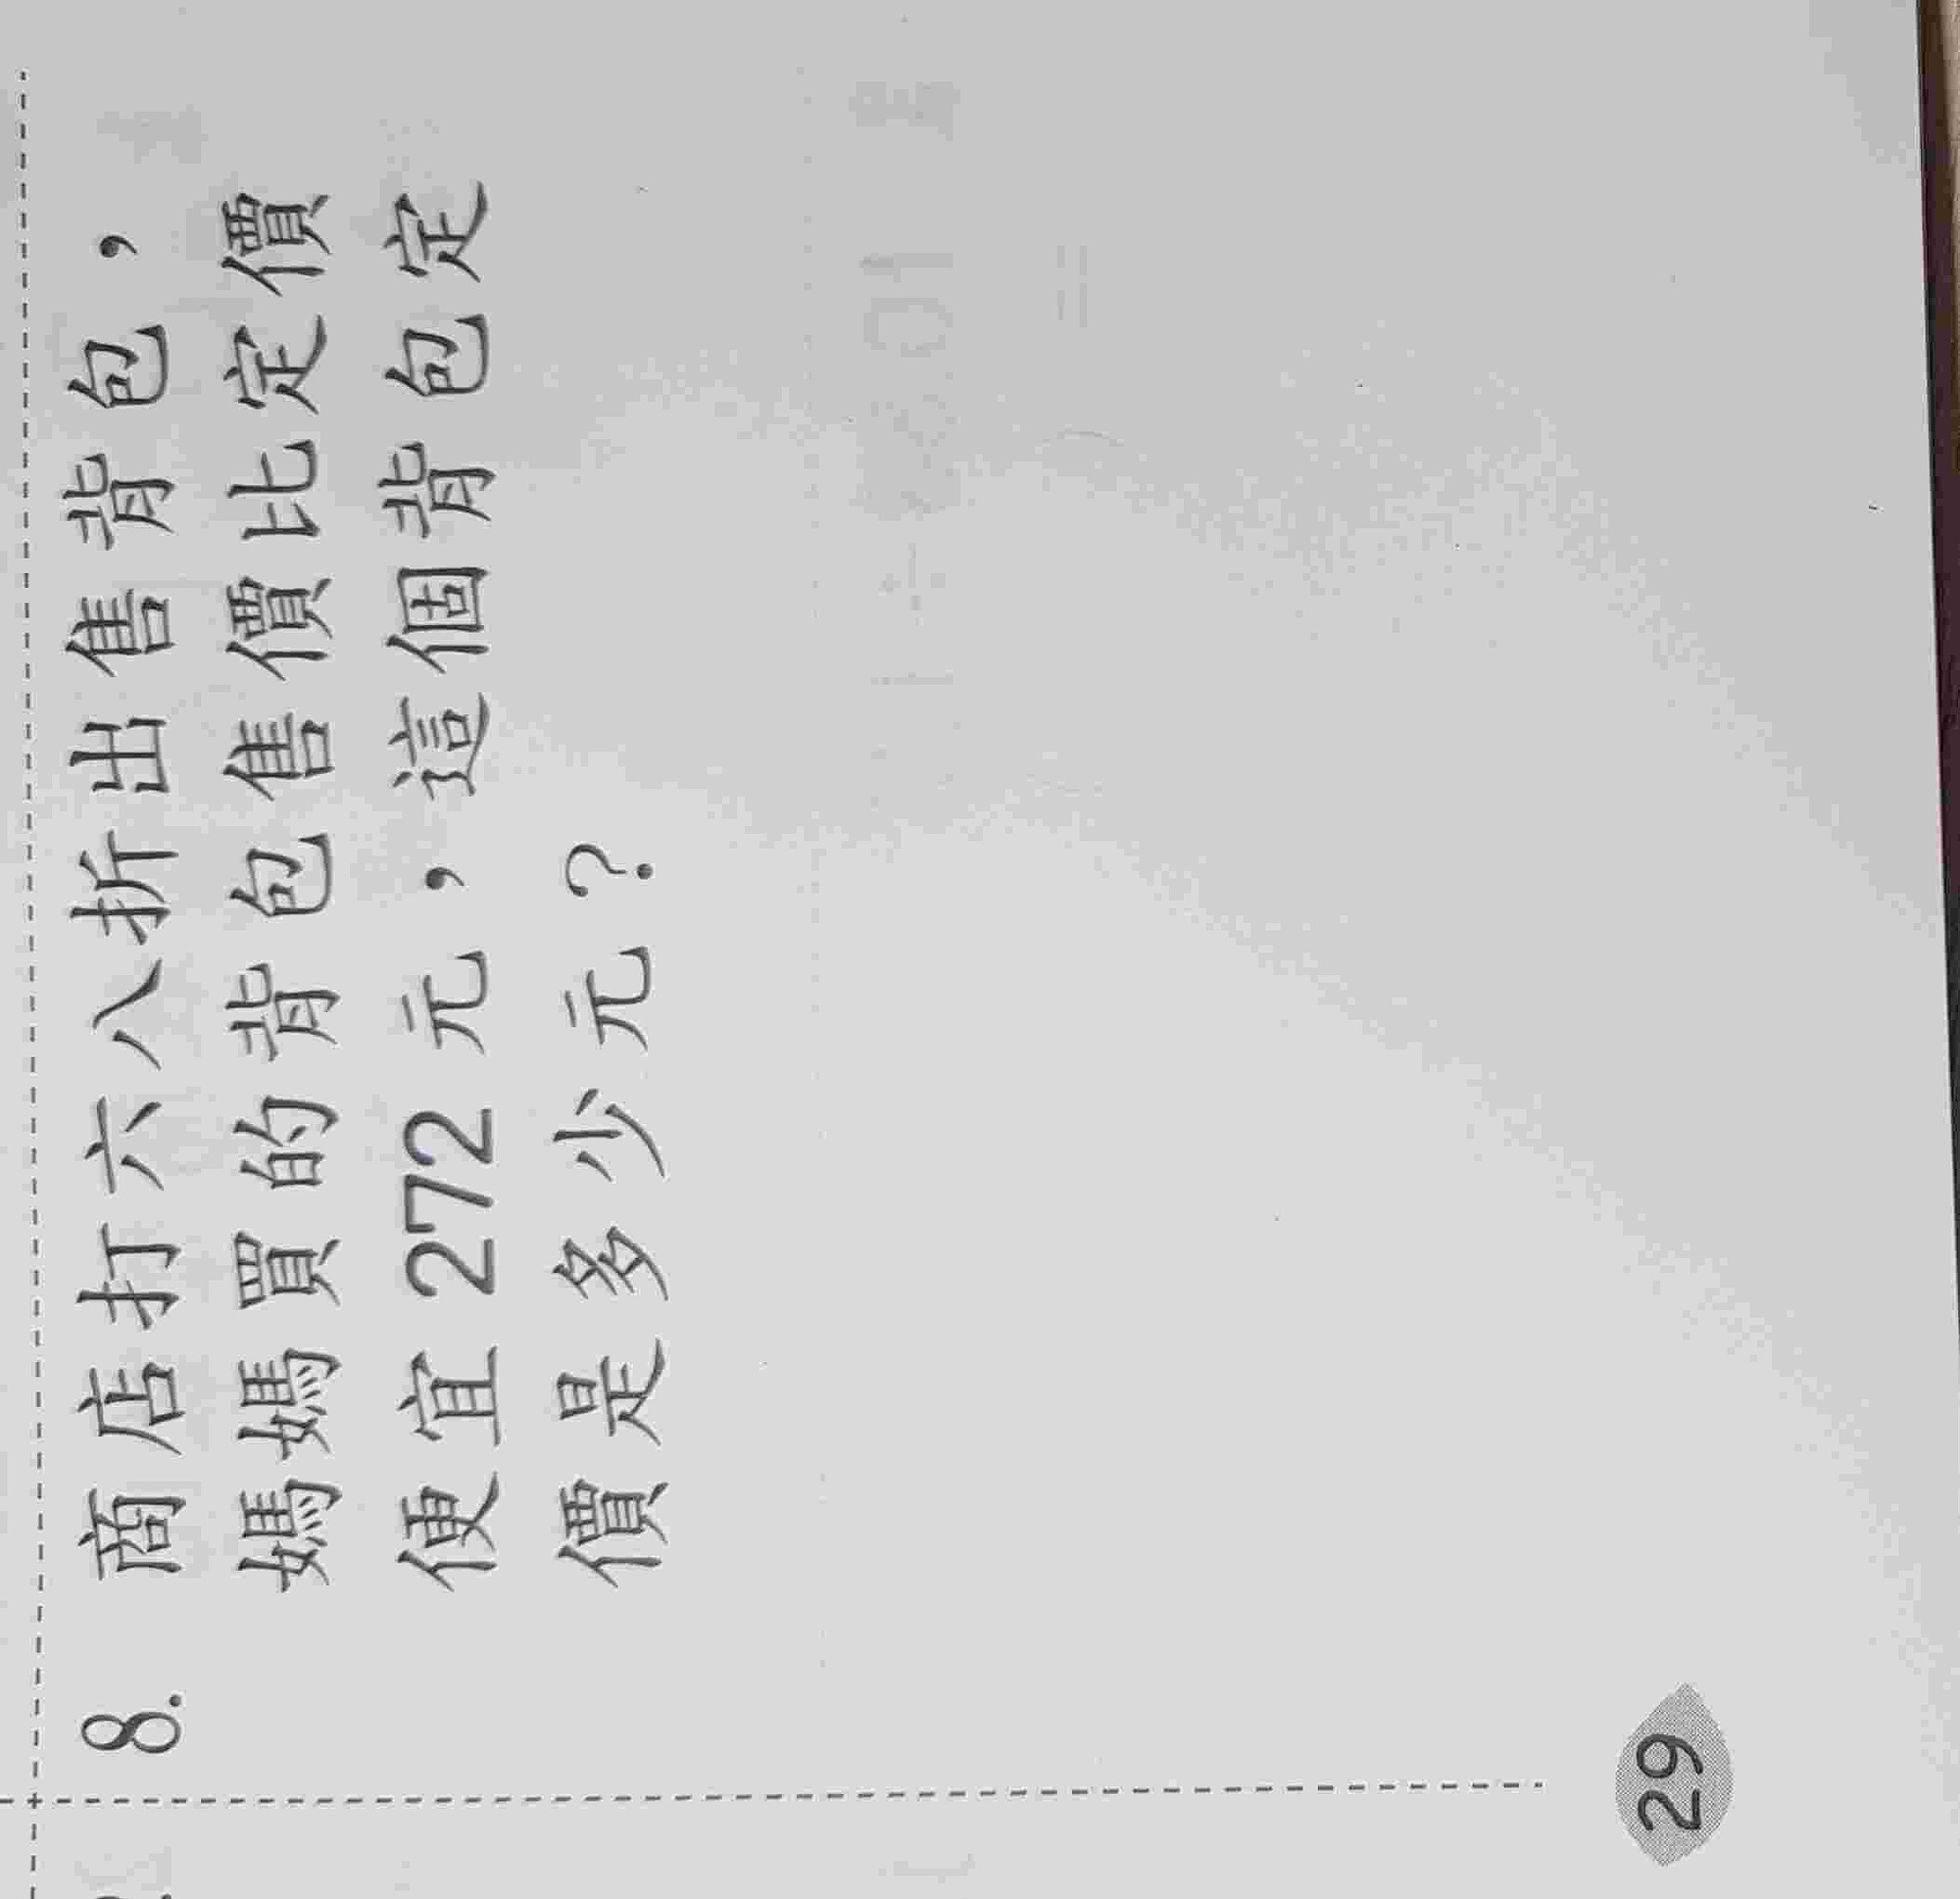 8. 商店打六八折出售背包，
媽媽買的背包售價比定價
便宜272元，這個背包定
價是多少元？
29